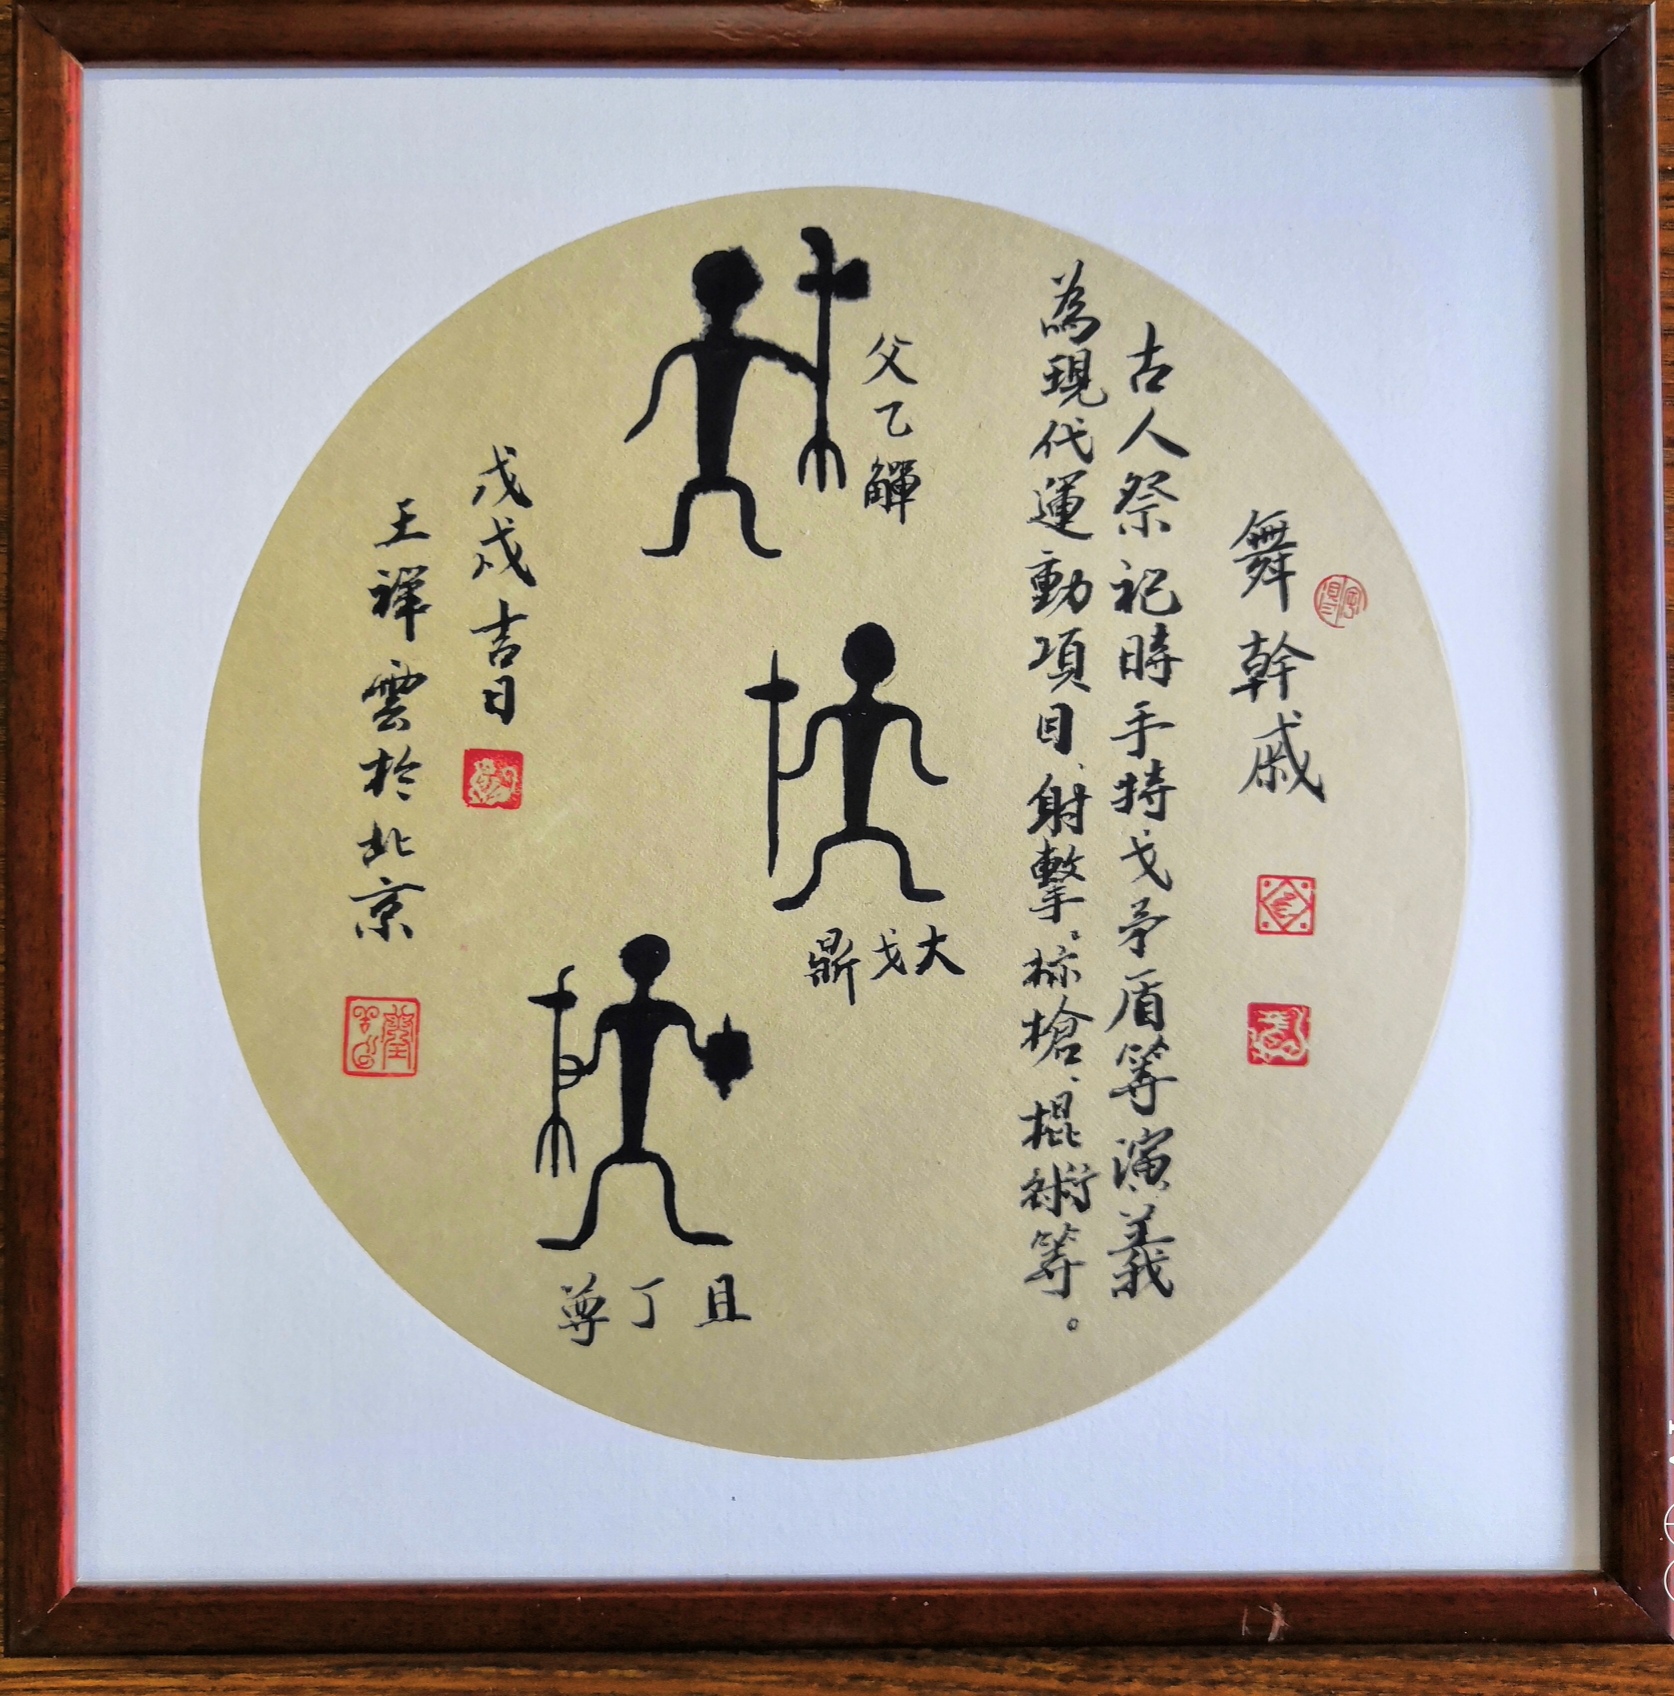 舞幹戚
古人祭祀時手持戈矛盾等演義
為現代運動項目、射擊。标槍、棍術等。
父乙觶
大戈鼎
且丁尊
戊戌吉日
王祥雲於北京